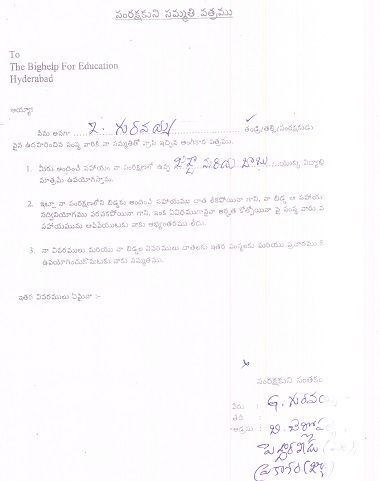 సంరక్షకుని సమ్మతి పత్రము
To
The Bighelp For Education
Hyderabad
అయ్యా
నేను అనగా గురవయ్య తండ్రి/తల్లి/సంరక్షకుడు
పైన ఉదహరించిన సంస్థ వారికి నా సమ్మతితో వ్రాసి ఇచ్చిన అంగీకార పత్రము.
1. మీరు అందించే సహాయం నా సంరక్షణలో ఉన్న బాబు యొక్క విద్యాభి
మాత్రమే ఉపయోగిస్తాను.
2. ఇట్లా నా సంరక్షణలోని బిడ్డకు అందించే సహాయము దాత లేకపోయినా గాని, నా బిడ్డ ఆ సహాయ
సద్వినియోగము పరచకపోయినా గాని, ఇంక ఏవిధముగానైనా అర్హత కోల్పోయినా పై సంస్థ వారు
సహాయమును ఆపివేయుటకు నాకు అభ్యంతరము లేదు.
3. నా వివరములు మరియు నా బిడ్డల వివరములు దాతలకు ఇతర సంస్థలకు మరియు ప్రచారము కొ
ఉపయోగించుకొనుటకు నాకు సమ్మతము.
ఇతర వివరములు ఏమైనా :-
సంరక్షకుని సంతకం
పేరు : G. గురవయ్య
తేది :
అడ్రసు :
ప్రకాశం